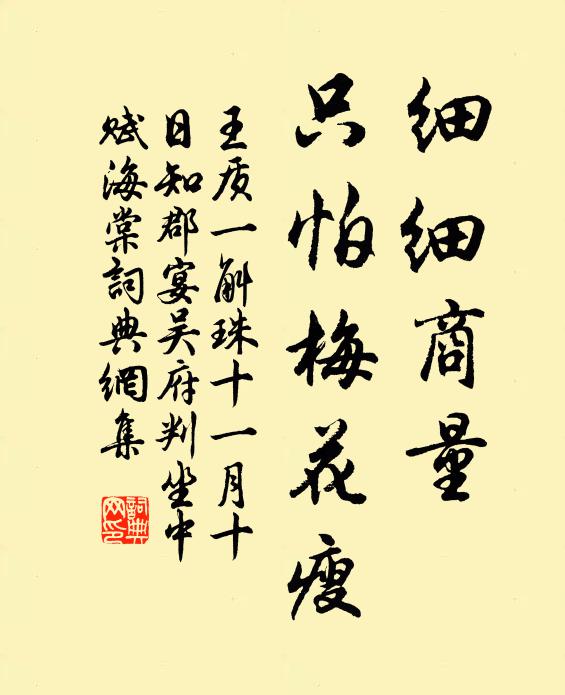 细细商量
只怕梅花瘦
王质一斛珠十一月十
日知郡宴吴府判坐中
赋海棠詞典網集
詞典